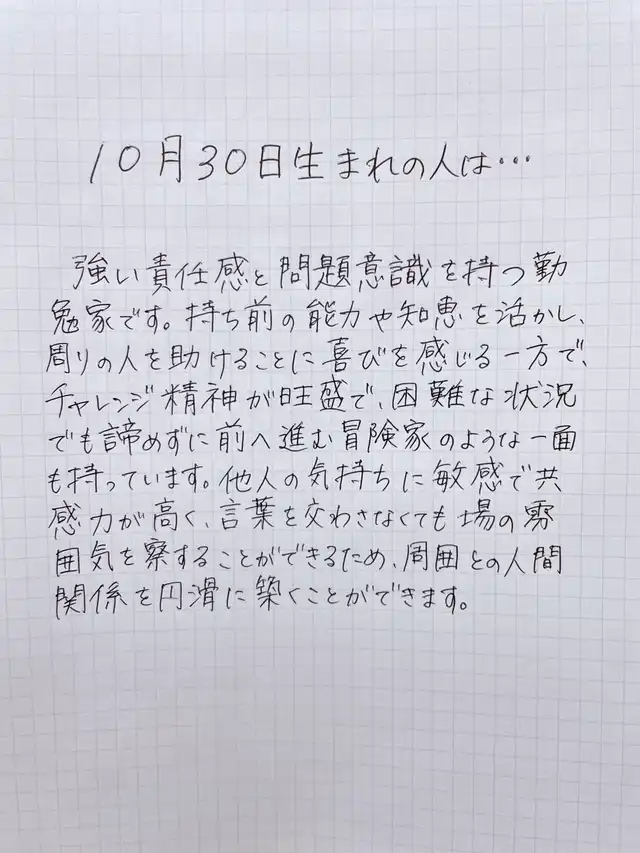 10月30日生まれの人は…
強い責任感と問題意識を持つ勤
勉家です。持ち前の能力や知恵を活かし、
周りの人を助けることに喜びを感じる一方で、
チャレンジ精神が旺盛で、困難な状況
でも諦めずに前へ進む冒険家のような一面
も持っています。他人の気持ちに敏感で共
感力が高く、言葉を交わさなくても場の雰
囲気を察することができるため、周囲との人間
関係を円滑に築くことができます。